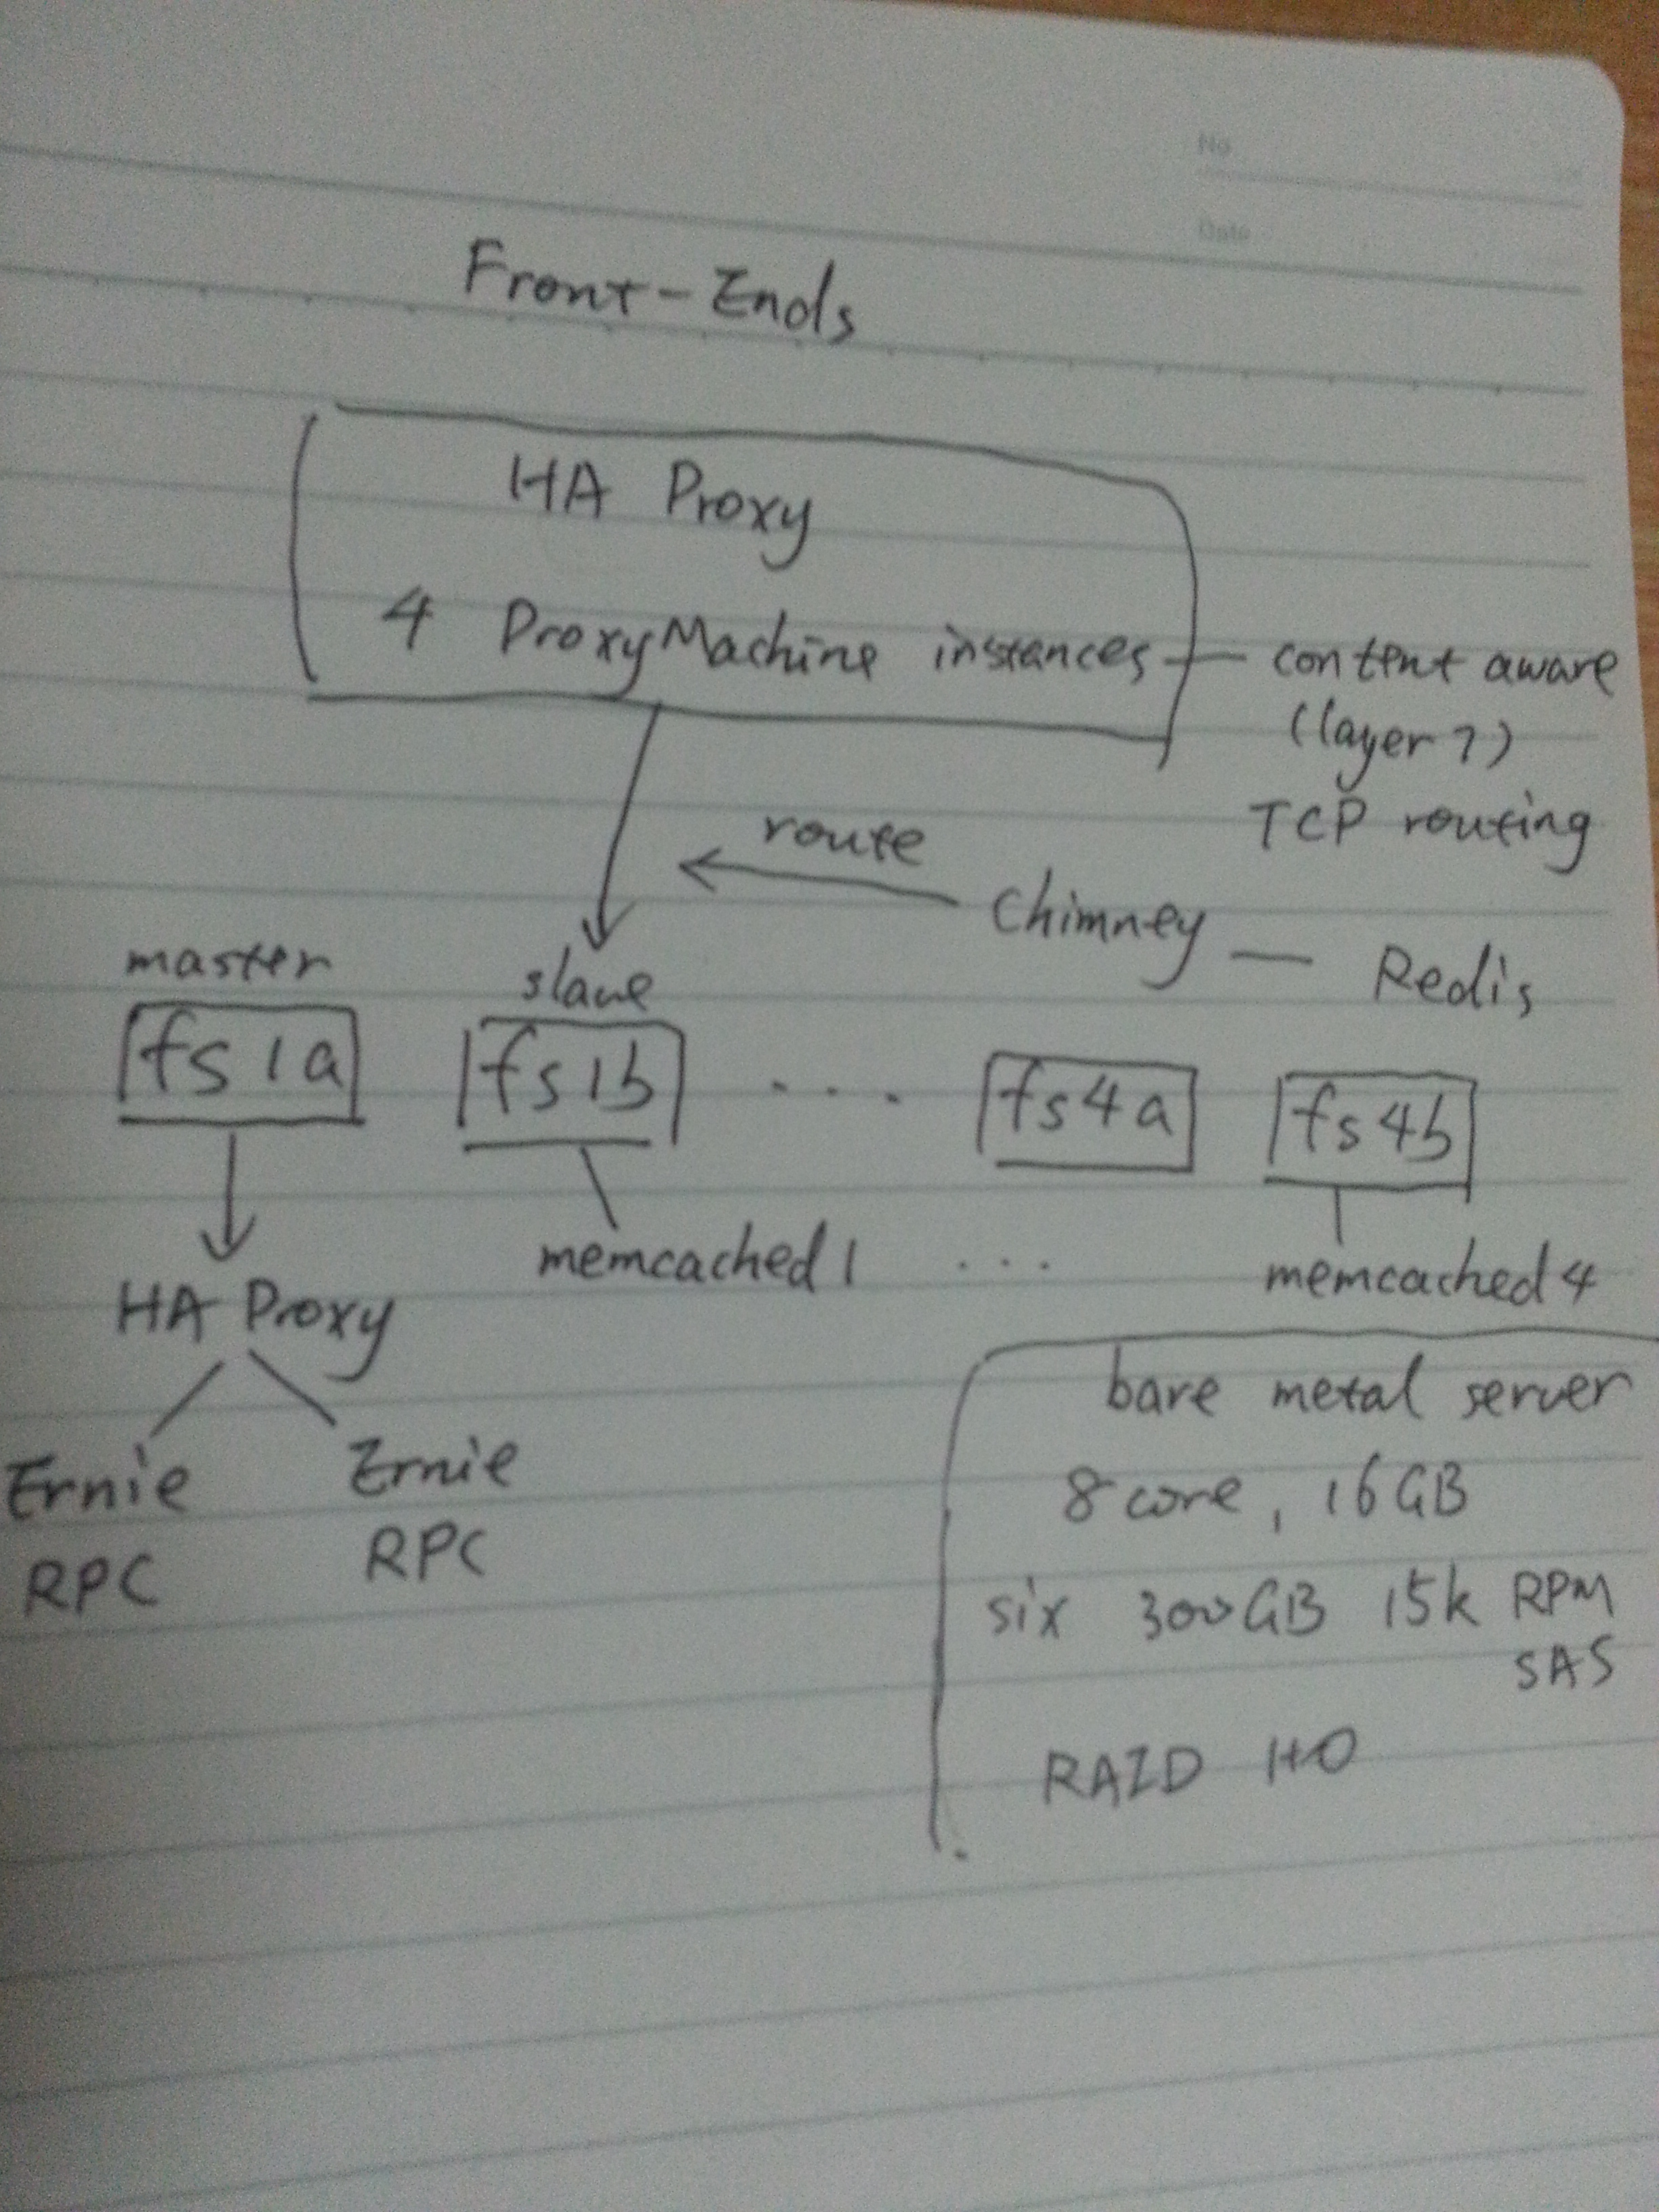 No
Date
Front-Ends
HA Proxy
4 ProxyMachine instances
content aware
(layer 7)
TCP routing
route
Chimney
Redis
master
slave
fs1a
fs1b
....
fs4a
fs4b
memcached 1
...
memcached 4
HA Proxy
Ernie
RPC
Ernie
RPC
bare metal server
8 core, 16GB
six 300GB 15k RPM
SAS
RAID 1+0